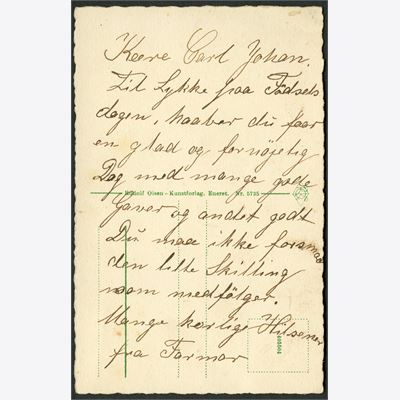 Kære Carl Johan.
Til Lykke paa Födsels
dagen, haaber du faar
en glad og fornøjelig
Dag med mange gode
Rudolf Olsen - Kunstforlag. Eneret. Nr. 5735
Gaver og andet godt
Du maa ikke forsmaa
den lille Skilling
som medfölger.
Mange kærlige Hilsener
fra Farmor